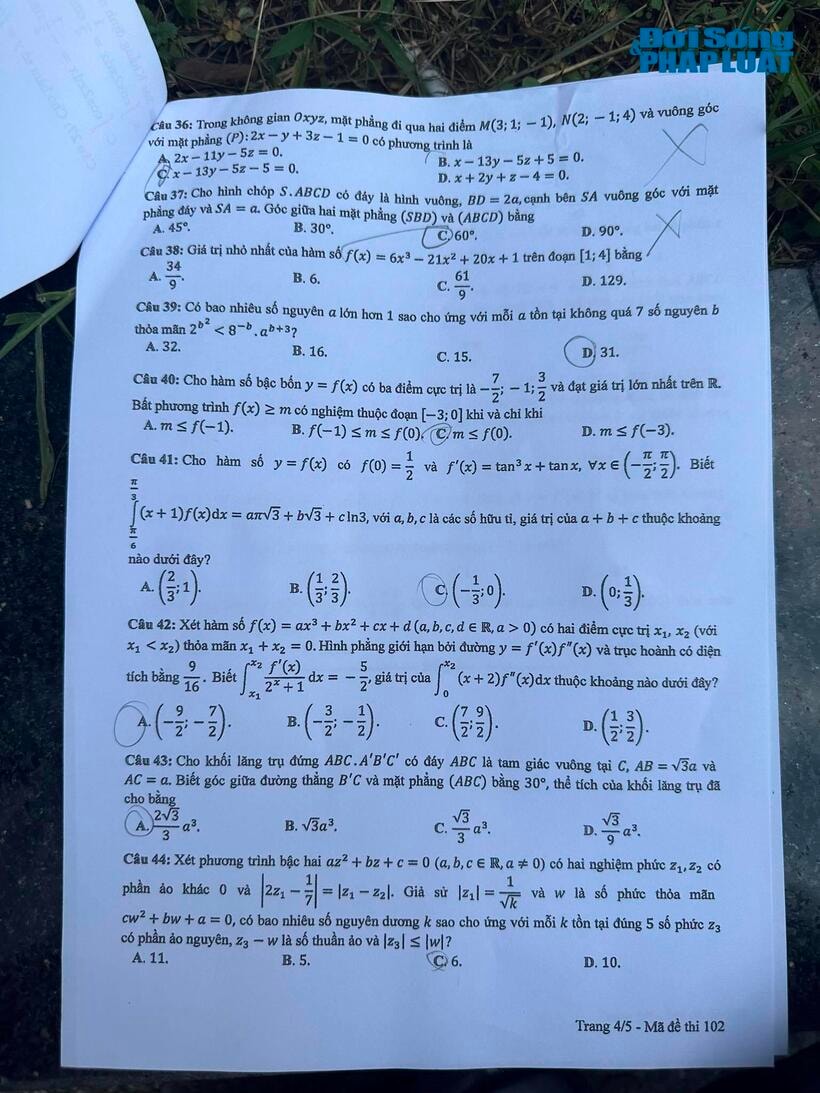 Đời Sống
& PHÁP LUẬT
Câu 36: Trong không gian Oxyz, mặt phẳng đi qua hai điểm M(3; 1; − 1), N(2; − 1; 4) và vuông góc
với mặt phẳng (P): 2x − y + 3z − 1 = 0 có phương trình là
A. 2x − 11y − 5z = 0. B. x − 13y − 5z + 5 = 0.
C. x − 13y − 5z − 5 = 0. D. x + 2y + z − 4 = 0.
Câu 37: Cho hình chóp S.ABCD có đáy là hình vuông, BD = 2a, cạnh bên SA vuông góc với mặt
phẳng đáy và SA = a. Góc giữa hai mặt phẳng (SBD) và (ABCD) bằng
A. 45°. B. 30°. C. 60°. D. 90°.
Câu 38: Giá trị nhỏ nhất của hàm số f(x) = 6x³ − 21x² + 20x + 1 trên đoạn [1; 4] bằng
A. 34/9. B. 6. C. 61/9. D. 129.
Câu 39: Có bao nhiêu số nguyên a lớn hơn 1 sao cho ứng với mỗi a tồn tại không quá 7 số nguyên b
thỏa mãn 2^{b²} < 8^{−b}. a^{b+3}?
A. 32. B. 16. C. 15. D. 31.
Câu 40: Cho hàm số bậc bốn y = f(x) có ba điểm cực trị là −7/2; − 1; 3/2 và đạt giá trị lớn nhất trên ℝ.
Bất phương trình f(x) ≥ m có nghiệm thuộc đoạn [−3; 0] khi và chỉ khi
A. m ≤ f(−1). B. f(−1) ≤ m ≤ f(0). C. m ≤ f(0). D. m ≤ f(−3).
Câu 41: Cho hàm số y = f(x) có f(0) = 1/2 và f′(x) = tan³ x + tan x, ∀x ∈ (−π/2; π/2). Biết
∫_{π/6}^{π/3} (x + 1)f(x)dx = aπ√3 + b√3 + c ln3, với a, b, c là các số hữu tỉ, giá trị của a + b + c thuộc khoảng
nào dưới đây?
A. (2/3; 1). B. (1/3; 2/3). C. (−1/3; 0). D. (0; 1/3).
Câu 42: Xét hàm số f(x) = ax³ + bx² + cx + d (a, b, c, d ∈ ℝ, a > 0) có hai điểm cực trị x₁, x₂ (với
x₁ < x₂) thỏa mãn x₁ + x₂ = 0. Hình phẳng giới hạn bởi đường y = f′(x)f″(x) và trục hoành có diện
tích bằng 9/16. Biết ∫_{x₁}^{x₂} f′(x)/(2ˣ + 1) dx = −5/2, giá trị của ∫_{0}^{x₂} (x + 2)f″(x)dx thuộc khoảng nào dưới đây?
A. (−9/2; −7/2). B. (−3/2; −1/2). C. (7/2; 9/2). D. (1/2; 3/2).
Câu 43: Cho khối lăng trụ đứng ABC.A′B′C′ có đáy ABC là tam giác vuông tại C, AB = √3a và
AC = a. Biết góc giữa đường thẳng B′C và mặt phẳng (ABC) bằng 30°, thể tích của khối lăng trụ đã
cho bằng
A. 2√3/3 a³. B. √3a³. C. √3/3 a³. D. √3/9 a³.
Câu 44: Xét phương trình bậc hai az² + bz + c = 0 (a, b, c ∈ ℝ, a ≠ 0) có hai nghiệm phức z₁, z₂ có
phần ảo khác 0 và |2z₁ − 1/7| = |z₁ − z₂|. Giả sử |z₁| = 1/√k và w là số phức thỏa mãn
cw² + bw + a = 0, có bao nhiêu số nguyên dương k sao cho ứng với mỗi k tồn tại đúng 5 số phức z₃
có phần ảo nguyên, z₃ − w là số thuần ảo và |z₃| ≤ |w|?
A. 11. B. 5. C. 6. D. 10.
Trang 4/5 - Mã đề thi 102